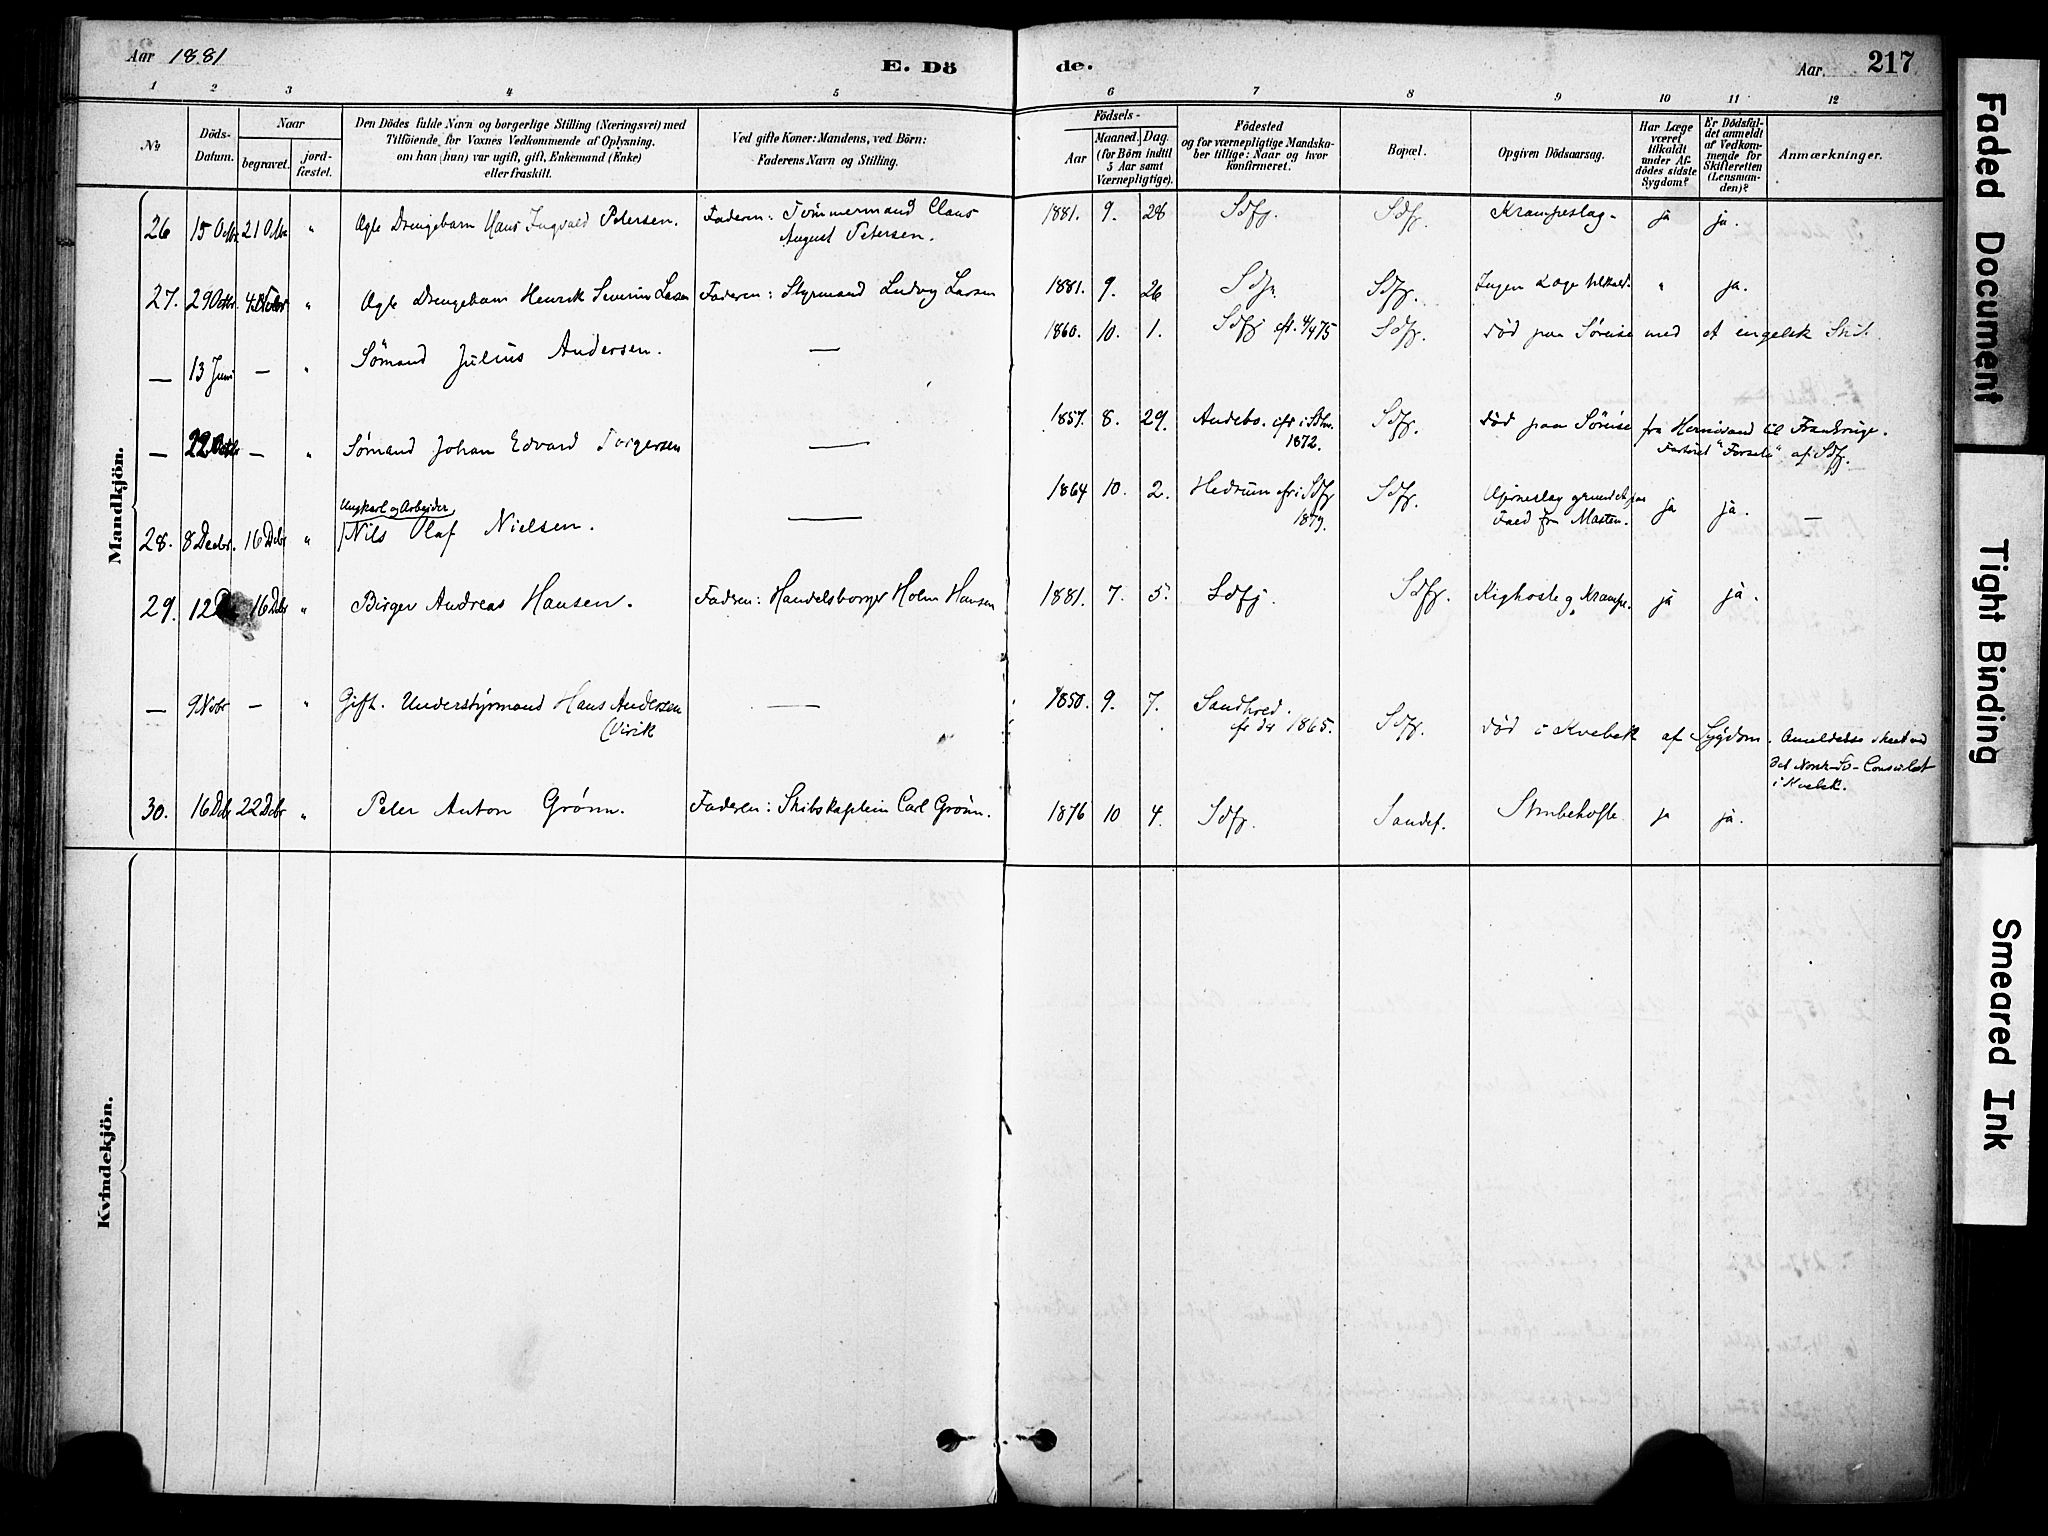 Aar 1881
E. Dö
de.
Aar.
217
1 2 3 4 5 6 7 8 9 10 11 12
No
Döds-
Datum.
Naar
begravet.
jord-
fæstet.
Den Dödes fulde Navn og borgerlige Stilling (Næringsvei) med
Tilföiende for Voxnes Vedkommende af Oplysning,
om han (hun) var ugift, gift, Enkemand (Enke)
eller fraskilt.
Ved gifte Koner: Mandens, ved Börn:
Faderens Navn og Stilling.
Födsels-
Aar
Maaned. Dag.
(for Börn indtil
5 Aar samt
Værnepligtige).
Födested
og for værnepligtige Mandska-
ber tillige: Naar og hvor
konfirmeret.
Bopæl.
Opgiven Dödsaarsag.
Har Læge
været
tilkaldt
under Af-
dödes sidste
Sygdom?
Er Dödsfal-
det anmeldt
af Vedkom-
mende for
Skifteretten
(Lensman-
den)?
Anmærkninger.
Mandkjön.
26 15 Octbr 21 Octbr " Ægte Drengebarn Hans Ingvald Petersen. Faderen: Tømmermand Claus
August Petersen.
1881. 9. 28 Sdfj. Sdfj. Krampeslag. ja ja.
27. 29 Octbr " Ægte Drengebarn Henrik Severin Larsen Faderen: Styrmand Ludvig Larsen
1881. 9. 26 Sdfj. Sdfj. Ingen Læge tilkaldt. " ja.
— 13 Juni — " Sømand Julius Andersen. —
1860. 10. 1. Sdfj Sdfj. død paa Søreise med et engelsk Skib.
— 22 Octbr — " Sømand Johan Edvard Torgersen —
1857. 8. 29. Andebo. Sdfj. død paa Søreise fra Hernøsand til Frankrige.
1872. Fartøiet "Forsete" af Sdfj.
Ungkarl og Arbeider
28. 8 Decbr. 16 Dcbr " Nils Olaf Nielsen. —
1864 10. 2. Hedrum cfr i Sdfj Sdfj. Hjerneslag grundet paa ja ja. —
1879. Fald fra Masten.
29. 12 16 Dcbr " Birger Andreas Hansen. Faderen: Handelsborger Holm Hansen
1881. 7. 5. Sdfj. Sdfj. Kighoste og Krampe. ja ja.
— 9 Nobr — " Gift. Understyrmand Hans Andersen —
(Virik
1850. 9. 7. Sandhered.
1865. Sdfj. død i Kvebek af Sygdom. Anmeldelse skeet ved
det Norsk-Sv- Consulat
i Kvebek.
30. 16 Dcbr 22 Dcbr " Peter Anton Grønn. Faderen: Skibskaptein Carl Grønn.
1876 10 4. Sdfj. Sandef. Strubehoste ja ja.
Kvindekjön.
Faded Document
Tight Binding
Smeared Ink